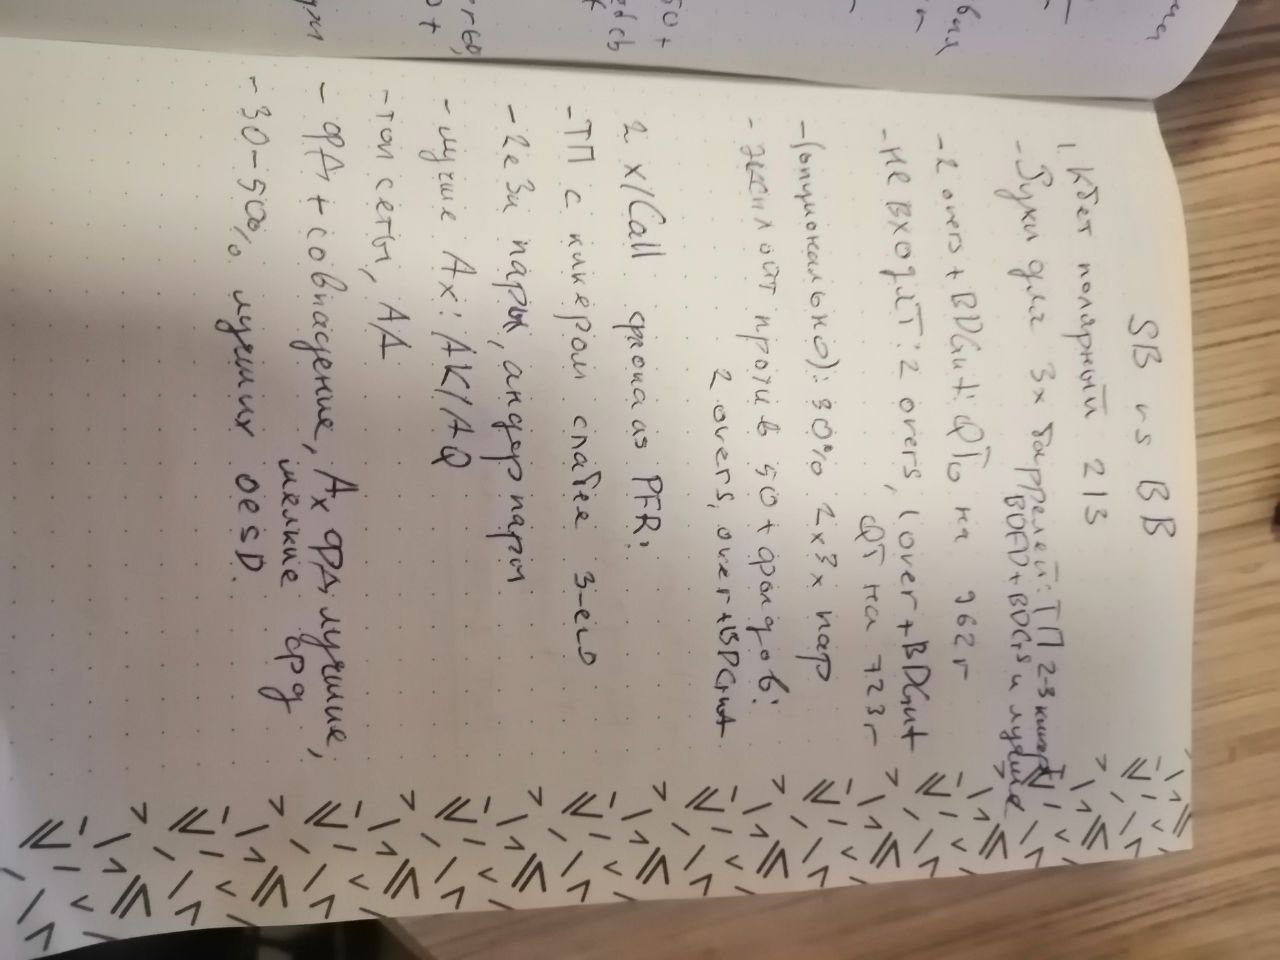 SB vs BB
1. Кбет полярный 2/3
- Руки для 3х баррелей: ТП 2-3 кикер
BDFD+BDGs и лучше
- 2 overs + BDGut: QTo на 962r
- не входят: 2 overs, 1 over + BDGut
QT на 723r
- (опционально): 30% 2х3х пар
- эксплойт против 50+ фолдов:
2 overs, over + BDGut
2 X/Call флопа as PFR:
- ТП с кикером слабее 3-его
- 2е 3и пары, андерпары
- лучшие Ax: AK/AQ
- топ сеты, AA
- ФД + совпадение, Ax ФД лучшие,
мелкие фд
- 30-50% лучших OESD